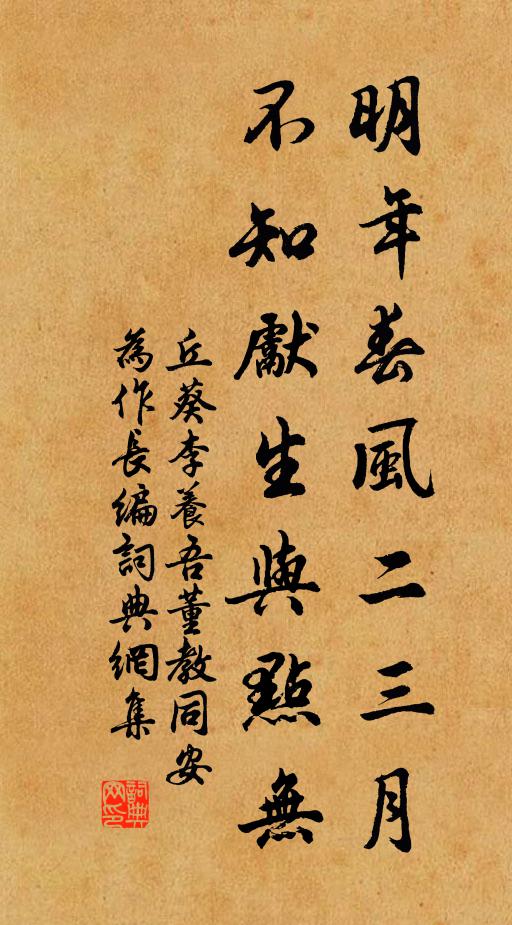 明年春風二三月
不知獻生與點無
丘葵李養吾董教同安
為作長編詞典網集
詞典
网印